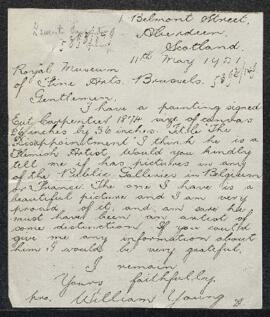 1 Belmont Street,
Aberdeen,
Scotland.
11th May 1951
Royal Museum
of Fine Arts. Brussels.
Gentlemen,
I have a painting signed
Evt Carpentier 1874 size of canvas
26 inches by 36 inches. Title The
Disappointment I think he is a
Flemish Artist would you kindly
tell me if he has pictures in any
of the Public Galleries in Belgium
or France. The one I have is a
beautiful picture and I am very
proud of it and am sure he
must have been an artist of
some distinction. If you could
give me any information about
him I would be very grateful.
I remain
Yours
faithfully,
William Young